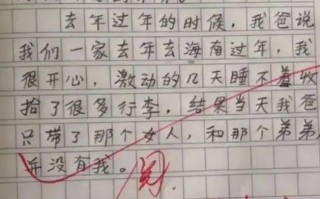 去年过年的时候，我爸说
我们一家去年去海南过年，我
很开心，激动的几天睡不着收
拾了很多行李。结果当天我爸
只带了那个女人，和那个弟弟，
并没有我。阅.